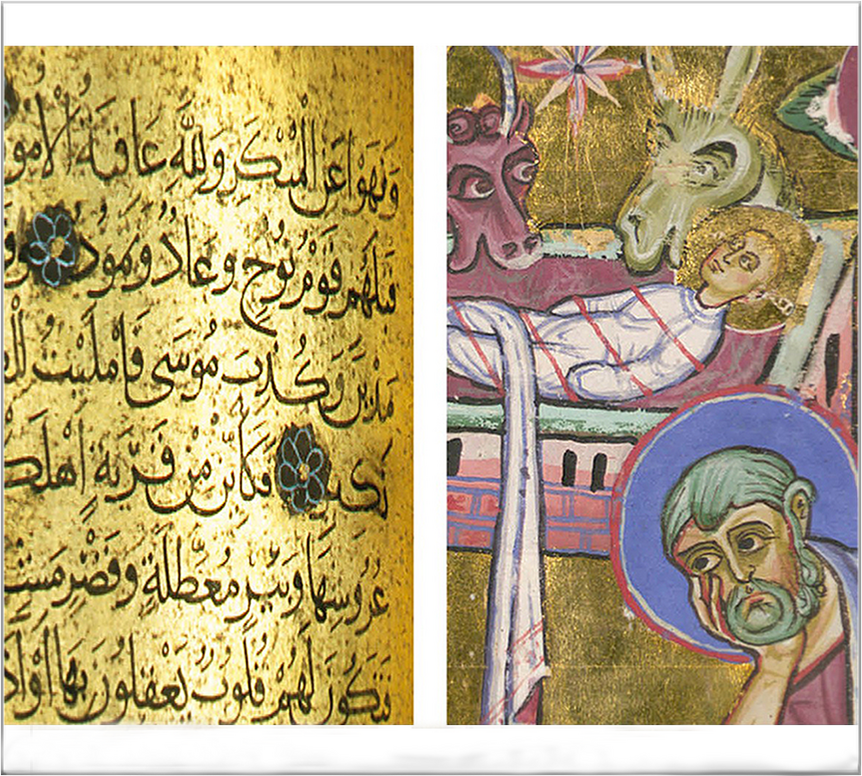 وَنَهَوْا عَنِ الْمُنْكَرِ وَلِلَّهِ عَاقِبَةُ الْأُمُو
قَبْلَهُمْ قَوْمُ نُوحٍ وَعَادٌ وَثَمُودُ
مَدْيَنَ وَكُذِّبَ مُوسَى فَأَمْلَيْتُ
نَكِيرِ فَكَأَيِّنْ مِنْ قَرْيَةٍ أَهْلَكْ
عُرُوشِهَا وَبِئْرٍ مُعَطَّلَةٍ وَقَصْرٍ مَشِ
فَتَكُونَ لَهُمْ قُلُوبٌ يَعْقِلُونَ بِهَا أَوْ آذَ